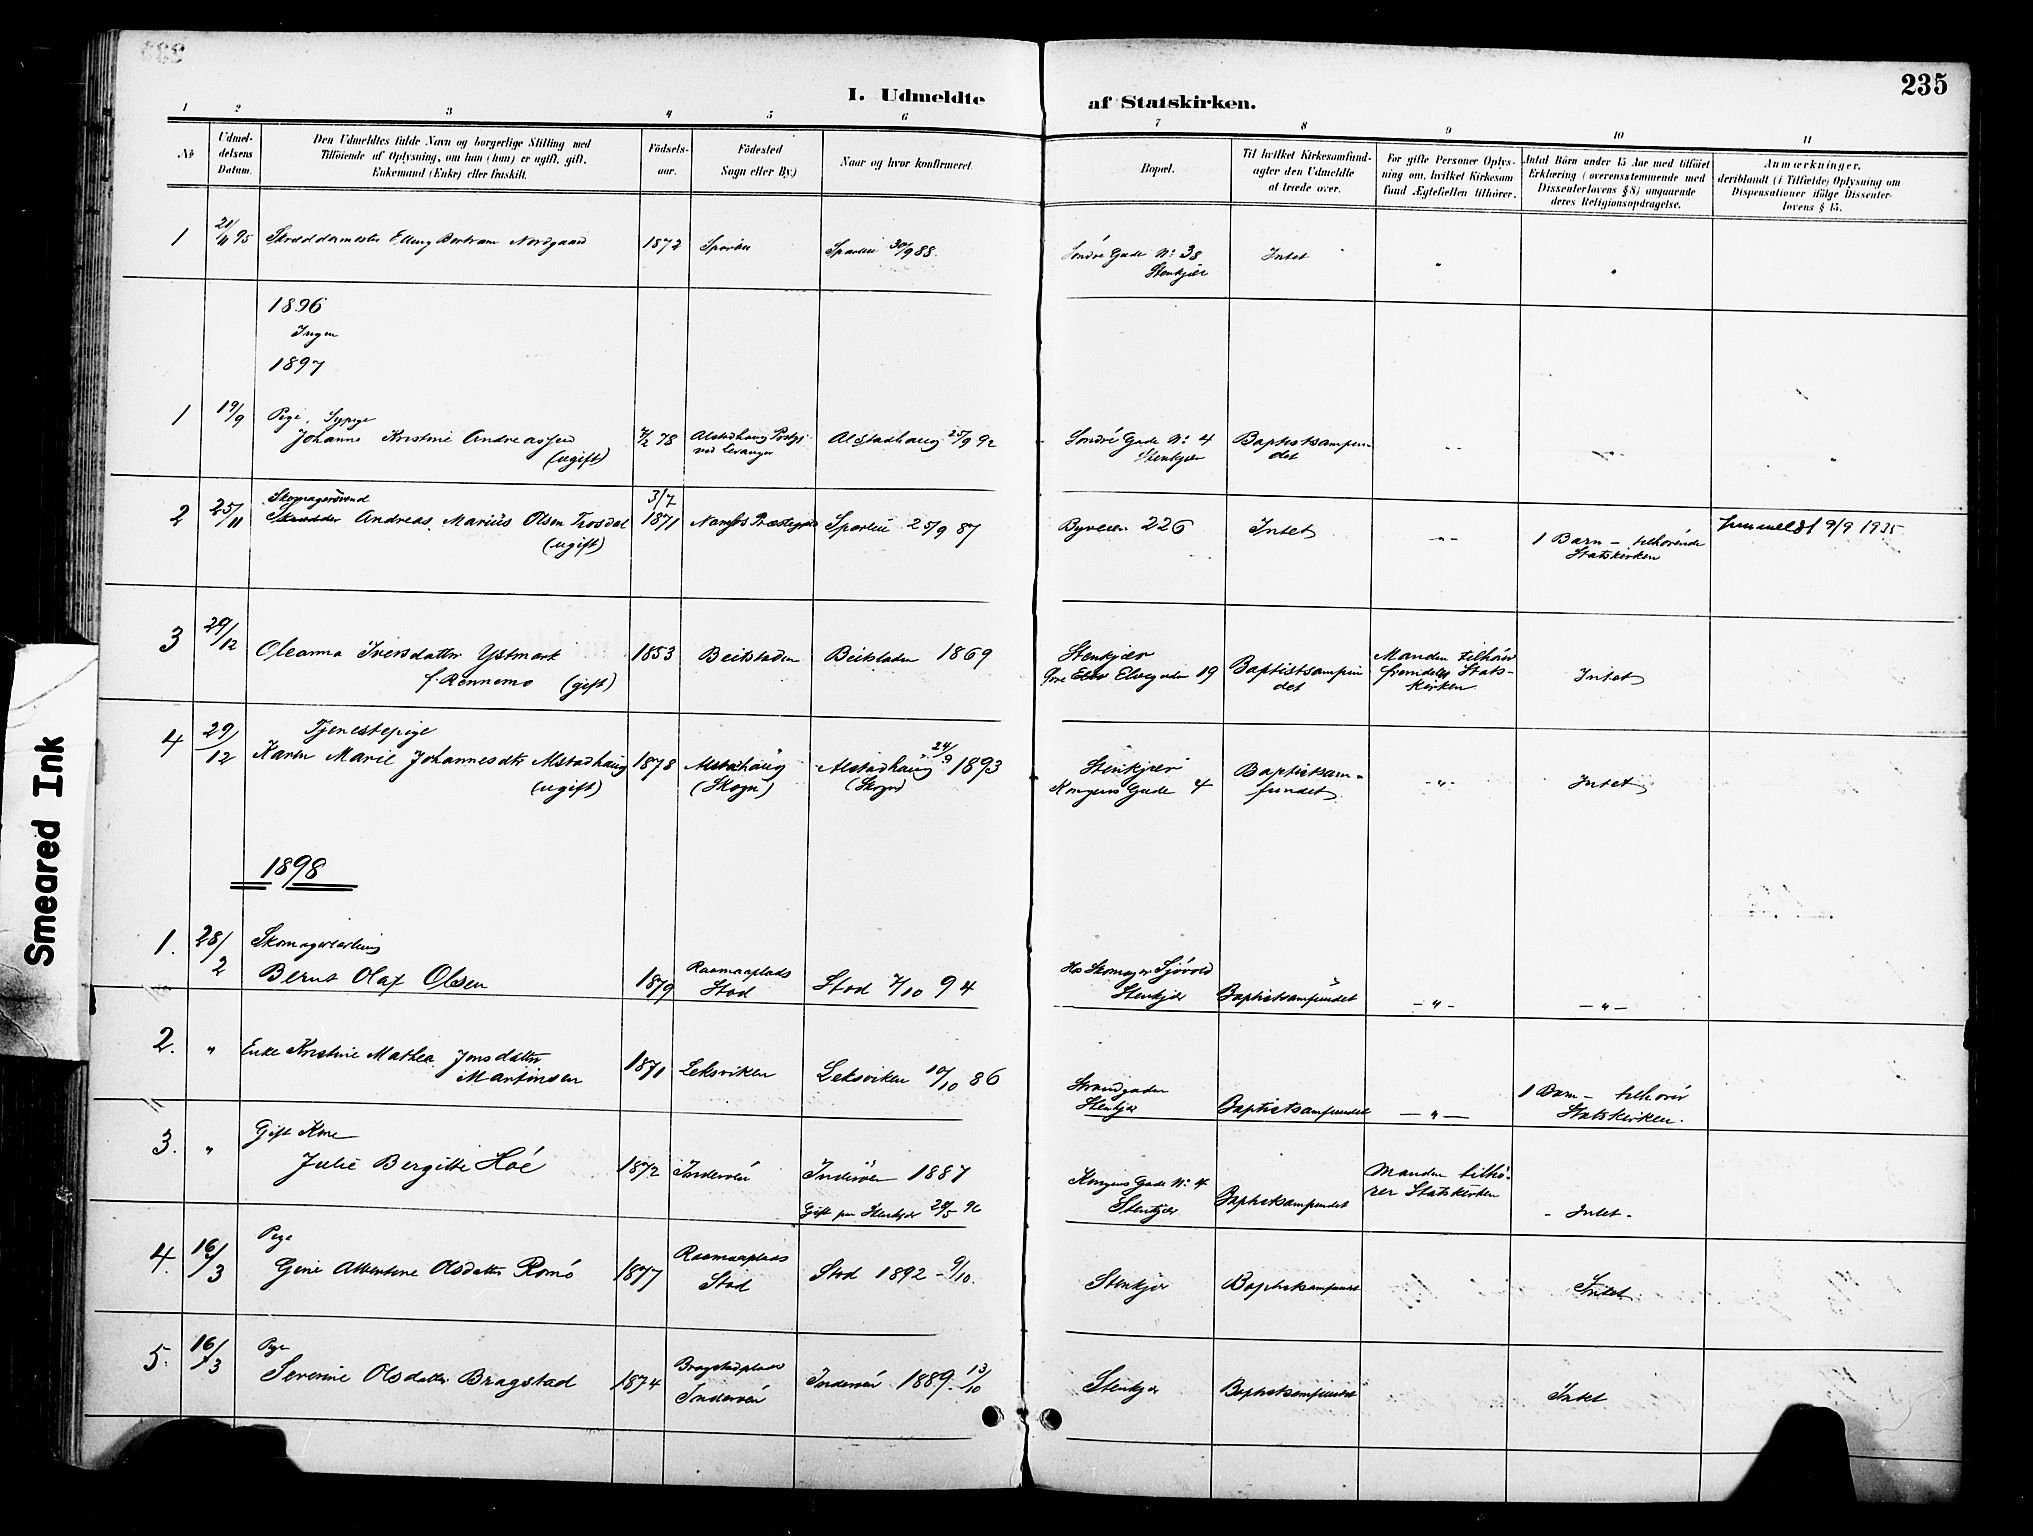 235
I. Udmeldte af Statskirken.
1 2 3 4 5 6 7 8 9 10 11
No
Udmel-
delsens
Datum.
Den Udmeldtes fulde Navn og borgerlige Stilling med
Tilføiende af Oplysning, om han (hun) er ugift, gift,
Enkemand (Enke) eller fraskilt.
Fødsels-
aar.
Fødested
Sogn eller By.)
Naar og hvor konfirmeret.
Bopæl.
Til hvilket Kirkesamfund-
agter den Udmeldte
at træde over.
For gifte Personer Oplys-
ning om, hvilket Kirkesam
fund Ægtefællen tilhører.
Antal Børn under 15 Aar med tilføiet
Erklæring (overensstemmende med
Dissenterlovens § 8) angaaende
deres Religionsopdragelse.
Anmærkninger,
deriblandt (i Tilfælde) Oplysning om
Dispensationer ifølge Dissenter-
lovens § 15.
1 21/11 95 Skræddermester Elling Bertram Nordgaard 1872 Sparbu Sparbu 30/9 88. Søndre Gade No 38 Intet " "
Stenkjær
1896
Ingen
1897
1 19/9 Pige, Sypige
Johanne Kristine Andreassen 4/2 78 Alstadhaug Prstgj. Alstadhaug 25/9 92 Søndre Gade No 4 Baptistsamfun
(ugift) ved Levanger Stenkjær det
2 25/11 Skomagersvend 3/7
Skrædder Andreas Marius Olsen Trosdal 1871 Namsos Præstegjeld Sparbu 25/9 87 Byveien 226 Intet -"- 1 Barn - tilhørende Innmeldt 9/9 1935
(ugift) Statskirken
3 29/12 Oleanna Iversdatter Ystmark 1853 Beitstaden Beitstaden 1869 Stenkjær Baptistsamfun Manden tilhører Intet
f. Rennemo (gift) Elvegaden 19 det fremdeles Stats-
kirken
4 29/12 Tjenestepige
Karen Marie Johannesdtr Alstadhaug 1878 Alstadhaug Alstadhaug 24/9 1893 Stenkjær Baptistsam- -"- Intet
(ugift) (Skogn) (Skogn) Kongens Gade 4 fundet
1898
1. 28/2 Skomagerlærling
Bernt Olaf Olsen 1879 Raamaaplads Stod 7/10 94 Hos Skomager Sjøvold Baptistsamfundet -"- -"-
Stod Stenkjær
2. " Enke Kristine Mathea Jonsdatter 1871 Leksviken Leksviken 10/10 86 Strandgaden Baptistsamfundet -"- 1 Barn - tilhører
Martinsen Stenkjær Statskirken.
3. " Gift Kone
Julie Bergitte Hoé 1872 Inderøen Inderøen 1887 Kongens Gade No 4 Baptistsamfundet Manden tilhø- - Intet -
Gift paa Stenkjær 20/5 96 Stenkjær rer Statskirken
4. 16/3 Pige
Gine Albertine Olsdatter Romo 1877 Raamaaplads Stod 1892 - 9/10. Stenkjær Baptistsamfundet Intet
Stod
5. 16/3 Pige
Severine Olsdatter Bragstad 1874 Bragstadplads Inderøen 1889. 13/10 Stenkjær Baptistsamfundet Intet
Inderøen
Smeared Ink